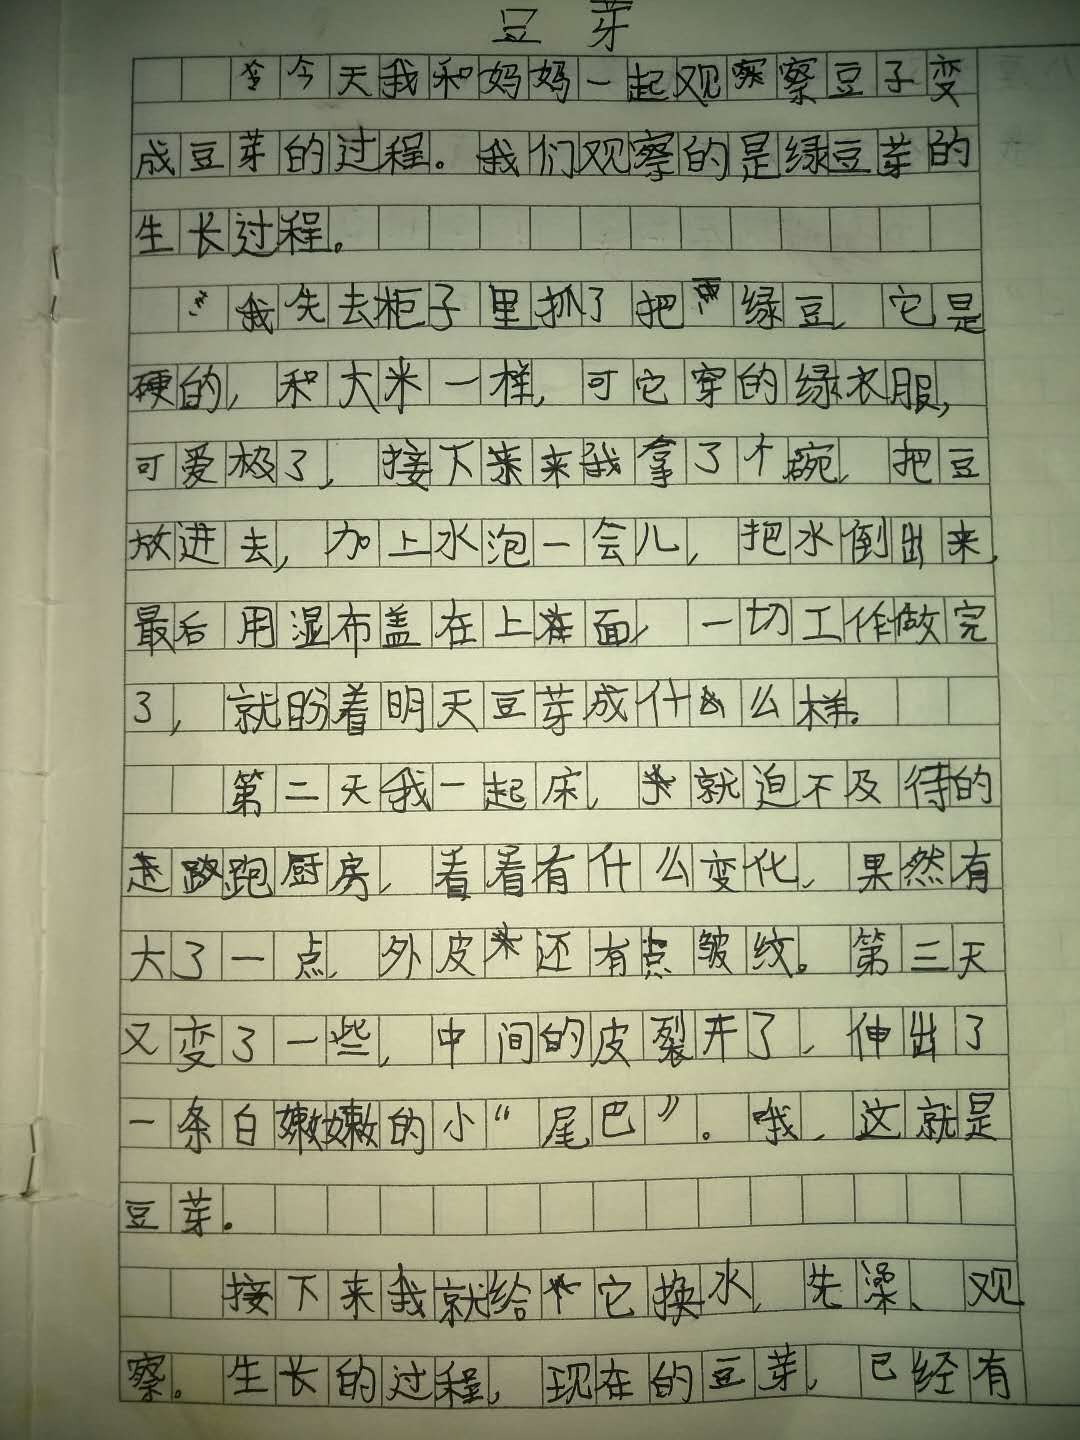 豆芽
今天我和妈妈一起观察豆子变
成豆芽的过程。我们观察的是绿豆芽的
生长过程。
我先去柜子里抓了把绿豆,它是
硬的,和大米一样,可它穿的绿衣服,
可爱极了,接下来我拿了个碗,把豆
放进去,加上水泡一会儿,把水倒出来,
最后用湿布盖在上面,一切工作做完
了,就盼着明天豆芽成什么样。
第二天我一起床,就迫不及待的
跑厨房,看看有什么变化,果然有
大了一点,外皮还有点皱纹。第三天
又变了一些,中间的皮裂开了,伸出了
一条白嫩嫩的小“尾巴”。哦,这就是
豆芽。
接下来我就给它换水,洗澡、观
察。生长的过程,现在的豆芽,已经有